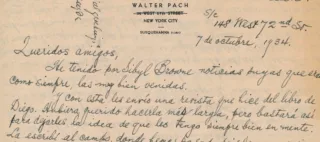 WALTER PACH
NEW YORK CITY
S/c
148 West 72nd St.
7 de octubre, 1934.
Queridos amigos,
He tenido por Sibyl Browne noticias suyas que
como siempre, las muy bien venidas.
Y con esta les envío una revista que hice del libro de
Diego. Hubiera querido hacerla más larga, pero bastará así
para darles la idea de que los tengo siempre bien en mente.
La escribí al campo, donde